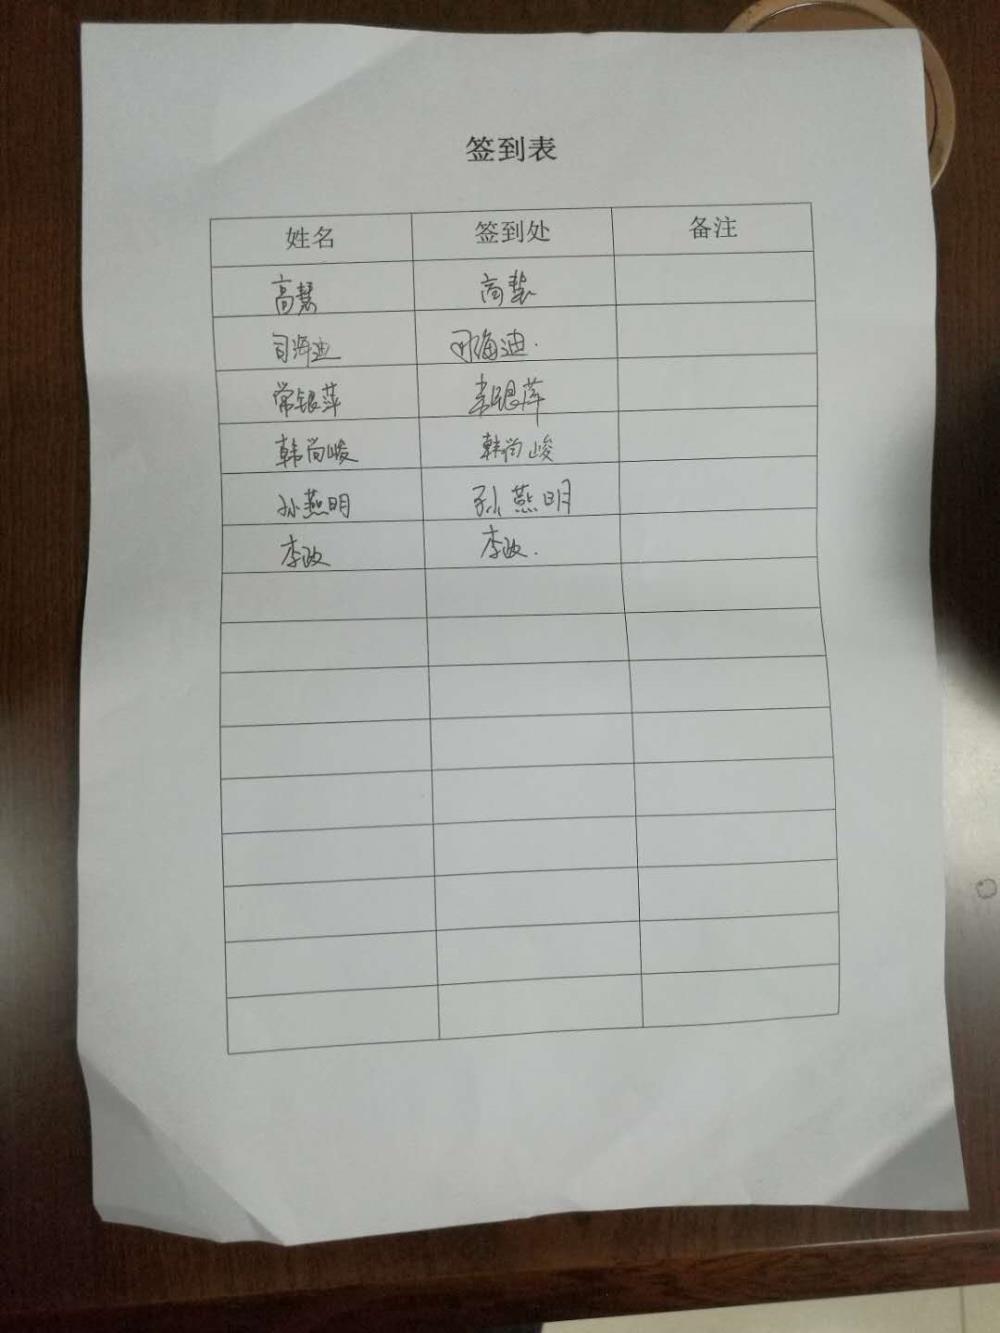 签到表
姓名 签到处 备注
高慧 高慧
司海迪 司海迪.
常银萍 常银萍
韩尚峻 韩尚峻
孙燕明 孙燕明
李政 李政.